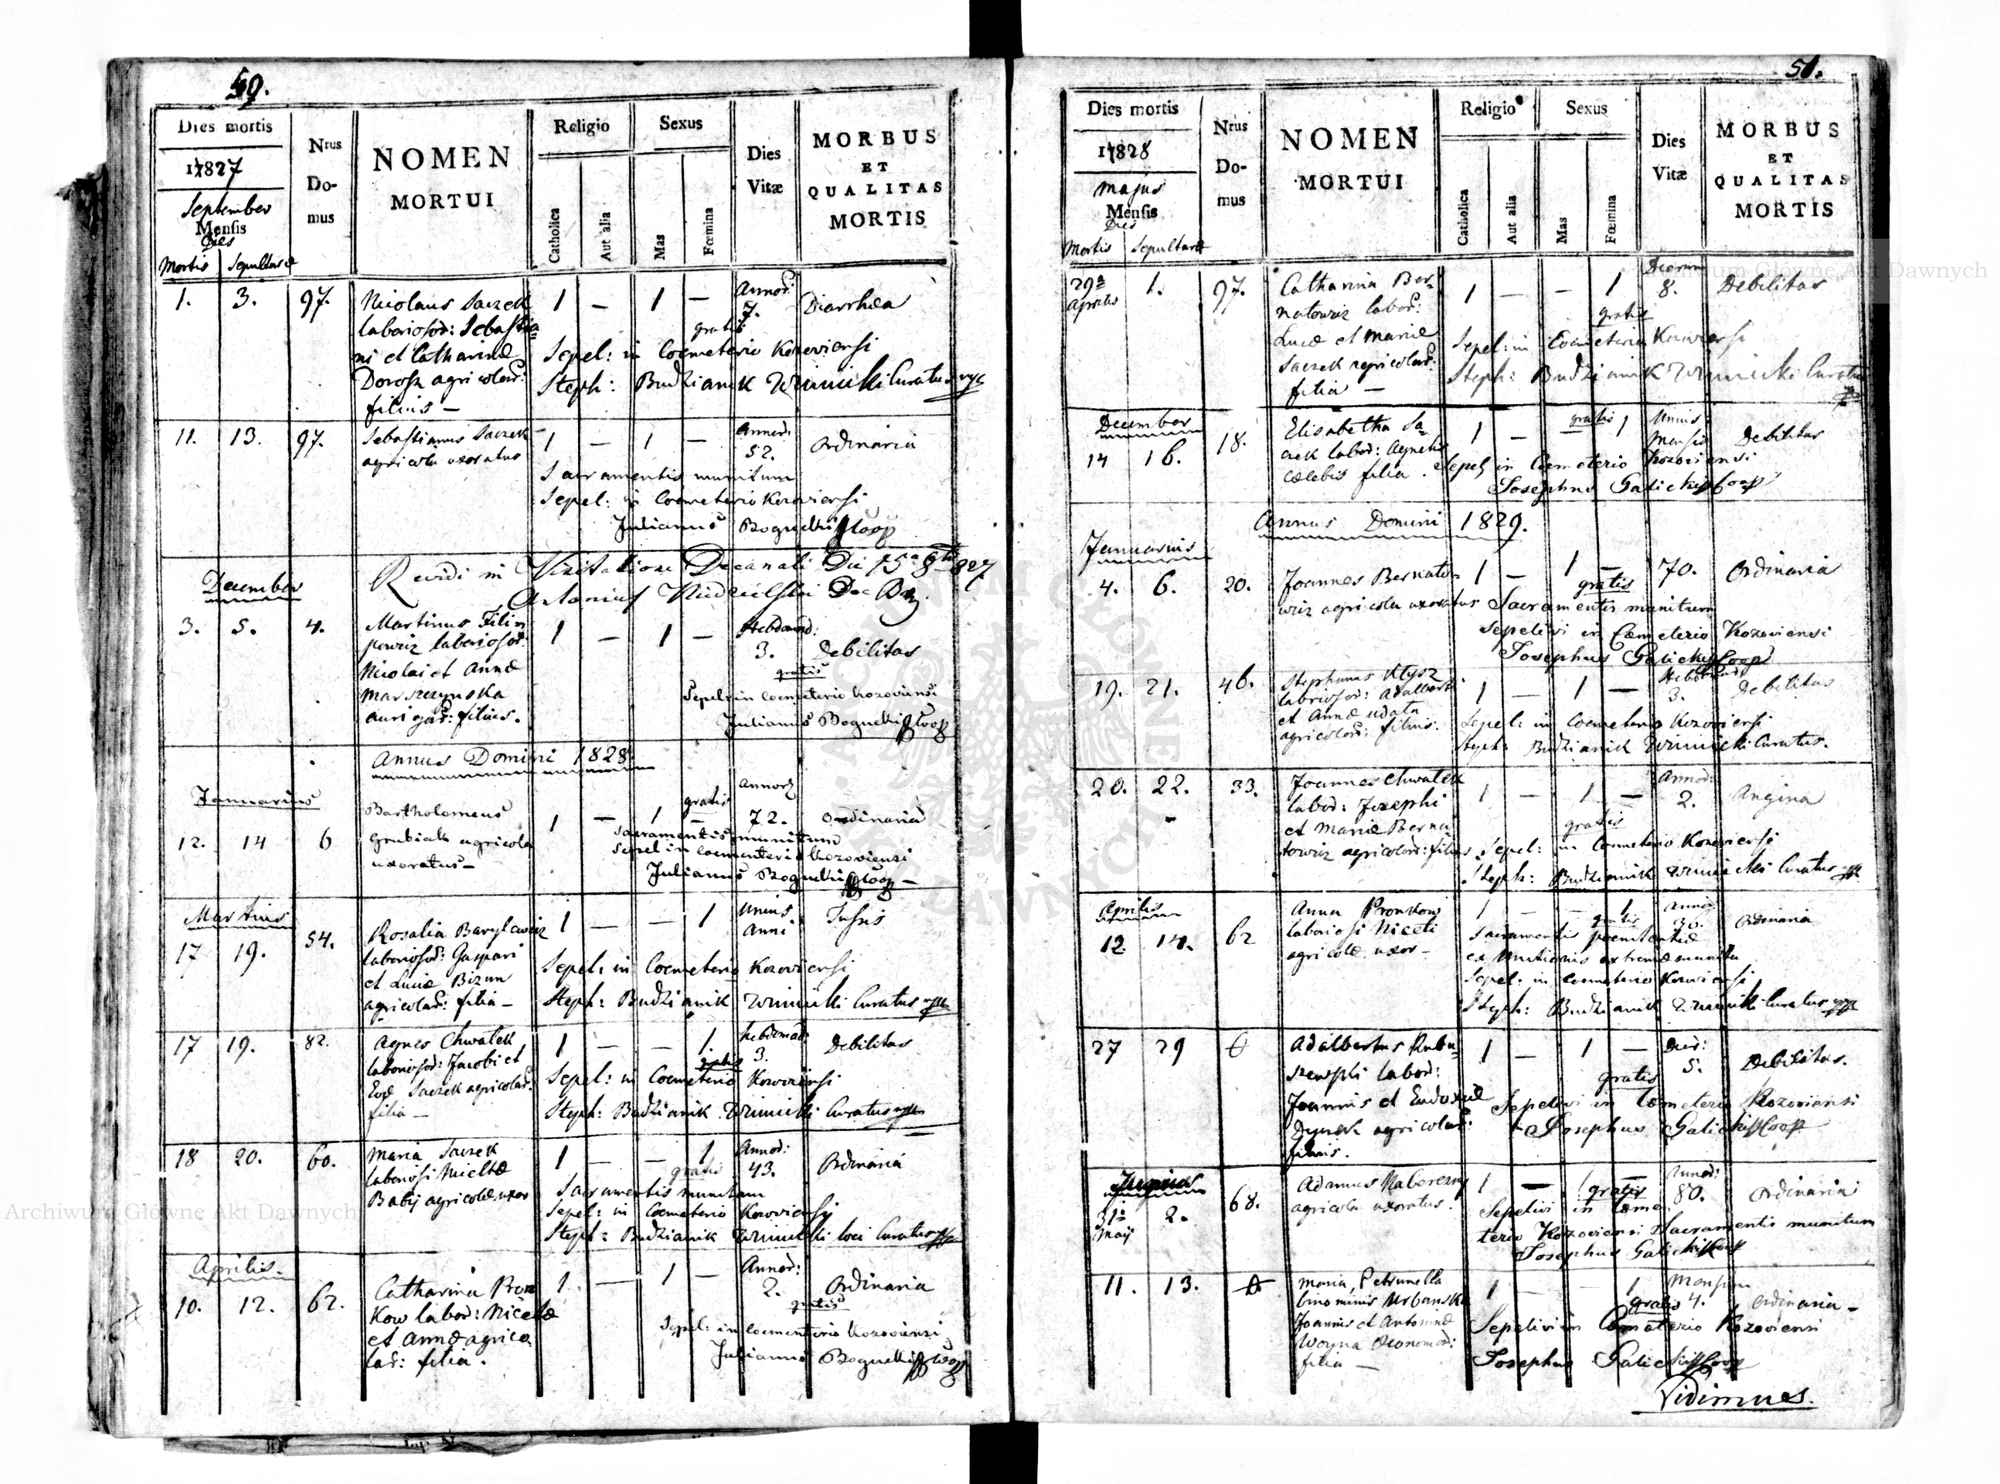 59.
Dies mortis
1827
September
Mensis
Dies
Mortis Sepulturæ
Nrus
Do-
mus
NOMEN
MORTUI
Religio
Catholica
Aut alia
Sexus
Mas
Fœmina
Dies
Vitæ
MORBUS
ET
QUALITAS
MORTIS
1. 3. 97. Nicolaus Saczek 1 — 1 — Annor: 7. Diarrhea
laboriosor: Sebastia=
ni et Catharinæ
Dorosz agricolar:
filius —
gratis
Sepel: in Coemeterio Kozoviensi
Steph: Budzianik Winnicki Curatus
11. 13. 97. Sebastianus Saczek 1 — 1 — Annor: 52. Ordinaria
agricola uxoratus
Sacramentis munitum
Sepel: in Coemeterio Kozoviensi
Julianus Bogucki Coop
Revidi in Visitatione Decanali Die 15a 8bris 827
Antonius
December
3. 5. 4. Martinus Filip 1 — 1 — Hebdomad: 3. Debilitas
powicz laboriosor:
Nicolai et Annæ
Marszczynska
aurigar: filius.
gratis
Sepel: in coemeterio Kozoviensi
Julianus Bogucki Coop
Annus Domini 1828.
Januarius
12. 14 6 Bartholomeus 1 — 1 — Annor 72. Ordinaria
agricola
uxoratus —
gratis
Sacramentis munitum
Sepel in coementerio Kozoviensi
Julianus Bogucki Coop —
Martius
17 19. 54. Rosalia Barylewicz 1 — — 1 Unius Anni. Tussis
laboriosor: Gaspari
et Luciæ Bizun
agricolar: filia —
Sepel: in Coemeterio Kozoviensi
Steph: Budzianik Winnicki Curatus
17 19. 82. Agnes Chwalek 1 — — 1. Hebdomad: 3. Debilitas
laboriosor: Jacobi et
Evæ Saczek agricolar:
filia —
gratis
Sepel: in Coemeterio Kozoviensi
Steph: Budzianik Winnicki Curatus
18 20. 60. Maria Saczek 1 — — 1 Annor: 43. Ordinaria
laboriosi
Babij agricolæ uxor
gratis
Sacramentis munitam
Sepel: in Coemeterio Kozoviensi
Steph: Budzianik Winnicki loci Curatus
Aprilis.
10. 12. 62. Catharina Pron 1. — 1 — Annor: 2. Ordinaria
kow labor: Nicetæ
et Annæ agrico
lar: filia.
gratis
Sepel: in coementerio Kozoviensi
Julianus Bogucki Coop
51.
Dies mortis
1828
Majus
Mensis
Dies
Mortis Sepulturæ
Nrus
Do-
mus
NOMEN
MORTUI
Religio
Catholica
Aut alia
Sexus
Mas
Fœmina
Dies
Vitæ
MORBUS
ET
QUALITAS
MORTIS
29a Aprilis 1. 97. Catharina Ber- 1 — — 1 Dierum 8. Debilitas
natowicz labor:
Lucæ et Mariæ
Saczek agricolar:
filia —
gratis
Sepel: in Coemeterio Kozoviensi
Steph: Budzianik Winnicki Curatus
December
14 16. 18. Elisabetha Sa= 1 — 1 Unius Mensis Debilitas
czek labor: Agnetis
cœlebis filia.
gratis
Sepel in Coemeterio Kozoviensi
Josephus Galicki Coop
Annus Domini 1829.
Januarius
4. 6. 20. Joannes Bernato- 1 — 1 — 70. Ordinaria
wicz agricola uxoratus
gratis
Sacramentis munitum
Sepelivi in Coemeterio Kozoviensi
Josephus Galicki Coop
19. 21. 46. Stephanus Klysz 1 — 1 — Hebdomad: 3. Debilitas
laboriosor: Adalberti
et Annæ
agricolar: filius.
Sepel: in Coemeterio Kozoviensi
Steph: Budzianik Winnicki Curatus.
20. 22. 33. Joannes Chwalek 1 — 1 — Annor: 2. Angina
labor: Josephi
et Mariæ Berna
towicz agricolar: filius
gratis
Sepel: in Coemeterio Kozoviensi
Steph: Budzianik Winnicki Curatus
Aprilis
12. 14. 62 Anna Pronkow 1 — — 1 Annor 36. Ordinaria
laboriosi Niceti
agricolæ uxor —
gratis
Sacramentis poenitentiæ
extremæ munitam
Sepel: in Coemeterio Kozoviensi
Steph: Budzianik Winnicki Curatus
27 29 Adalbertus 1 — 1 — Dier: 5. Debilitas.
labor:
Joannis et Eudoxiæ
agricolar:
filius.
gratis
Sepelivi in Coemeterio Kozoviensi
Josephus Galicki Coop
Junius
31a Maij 2. 68. Adamus Naberezny 1 — 1 — Annor: 80. Ordinaria
agricola uxoratus.
gratis
Sepelivi in Coeme
terio Kozoviensi Sacramentis munitum
Josephus Galicki Coop
11. 13. Maria, Petrunella 1 — — 1 Mensium 4. Ordinaria —
binominis Urbanska
Joannis et Antoninæ
Woyna Oeconomor:
filia —
gratis
Sepelivi in Coemeterio Kozoviensi
Josephus Galicki Coop
Vidimus.
Archiwum Główne Akt Dawnych
Archiwum Główne Akt Dawnych
ARCHIWUM GŁÓWNE AKT DAWNYCH